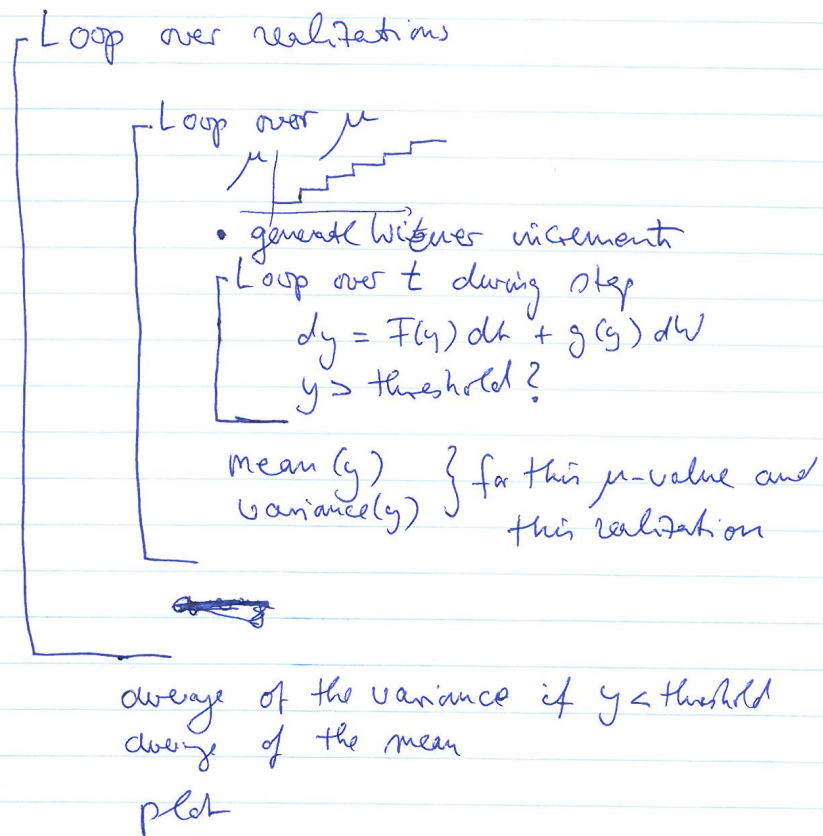 Loop over realizations
Loop over μ
μ
• generate Wiener increments
Loop over t during step
dy = F(y) dt + g(y) dW
y > threshold?
mean (y) } for this μ-value and
variance(y) this realization
average of the variance if y < threshold
average of the mean
plot